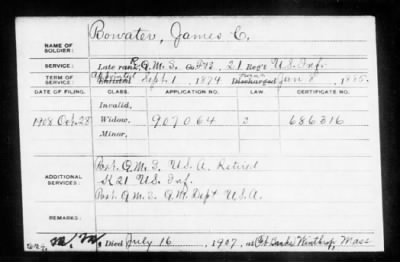 Bowater, James C.
NAME OF SOLDIER:
SERVICE: Late rank, Q.M.S. Co. F&B, 21 Reg't U.S. Inf.
TERM OF SERVICE: Enlisted Sept. 1, 1879 Discharged Jan 8, 1885.
DATE OF FILING. CLASS. APPLICATION NO. LAW. CERTIFICATE NO.
Invalid,
1908 Oct. 28 Widow, 907064 2 686316
Minor,
ADDITIONAL SERVICES:
Post Q.M.S. U.S.A. Retired
K 21 U.S. Inf.
Post Q.M.S. Q.M. Dept U.S.A.
REMARKS:
Died July 16, 1907, at Ft. Banks Winthrop, Mass